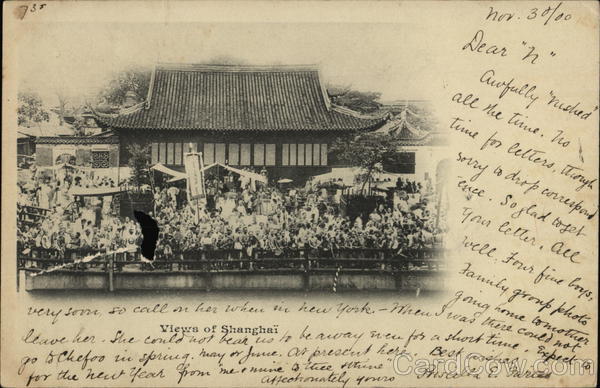 735
Nov. 30/00
Dear "N"
Awfully "rushed"
all the time. No
time for letters, though
sorry to drop correspond
ence. So glad to get
your letter. All
well. Four fine boys,
Family group photo
going home to mother
very soon, so call on her when in New York - When I was there could not
Views of Shanghaï
leave her. She could not bear us to be away even for a short time. Expect to
go to Chefoo in spring. May or June. At present here. Best wishes
for the New Year from me & mine to thee & thine
affectionately yours
CardCow.com